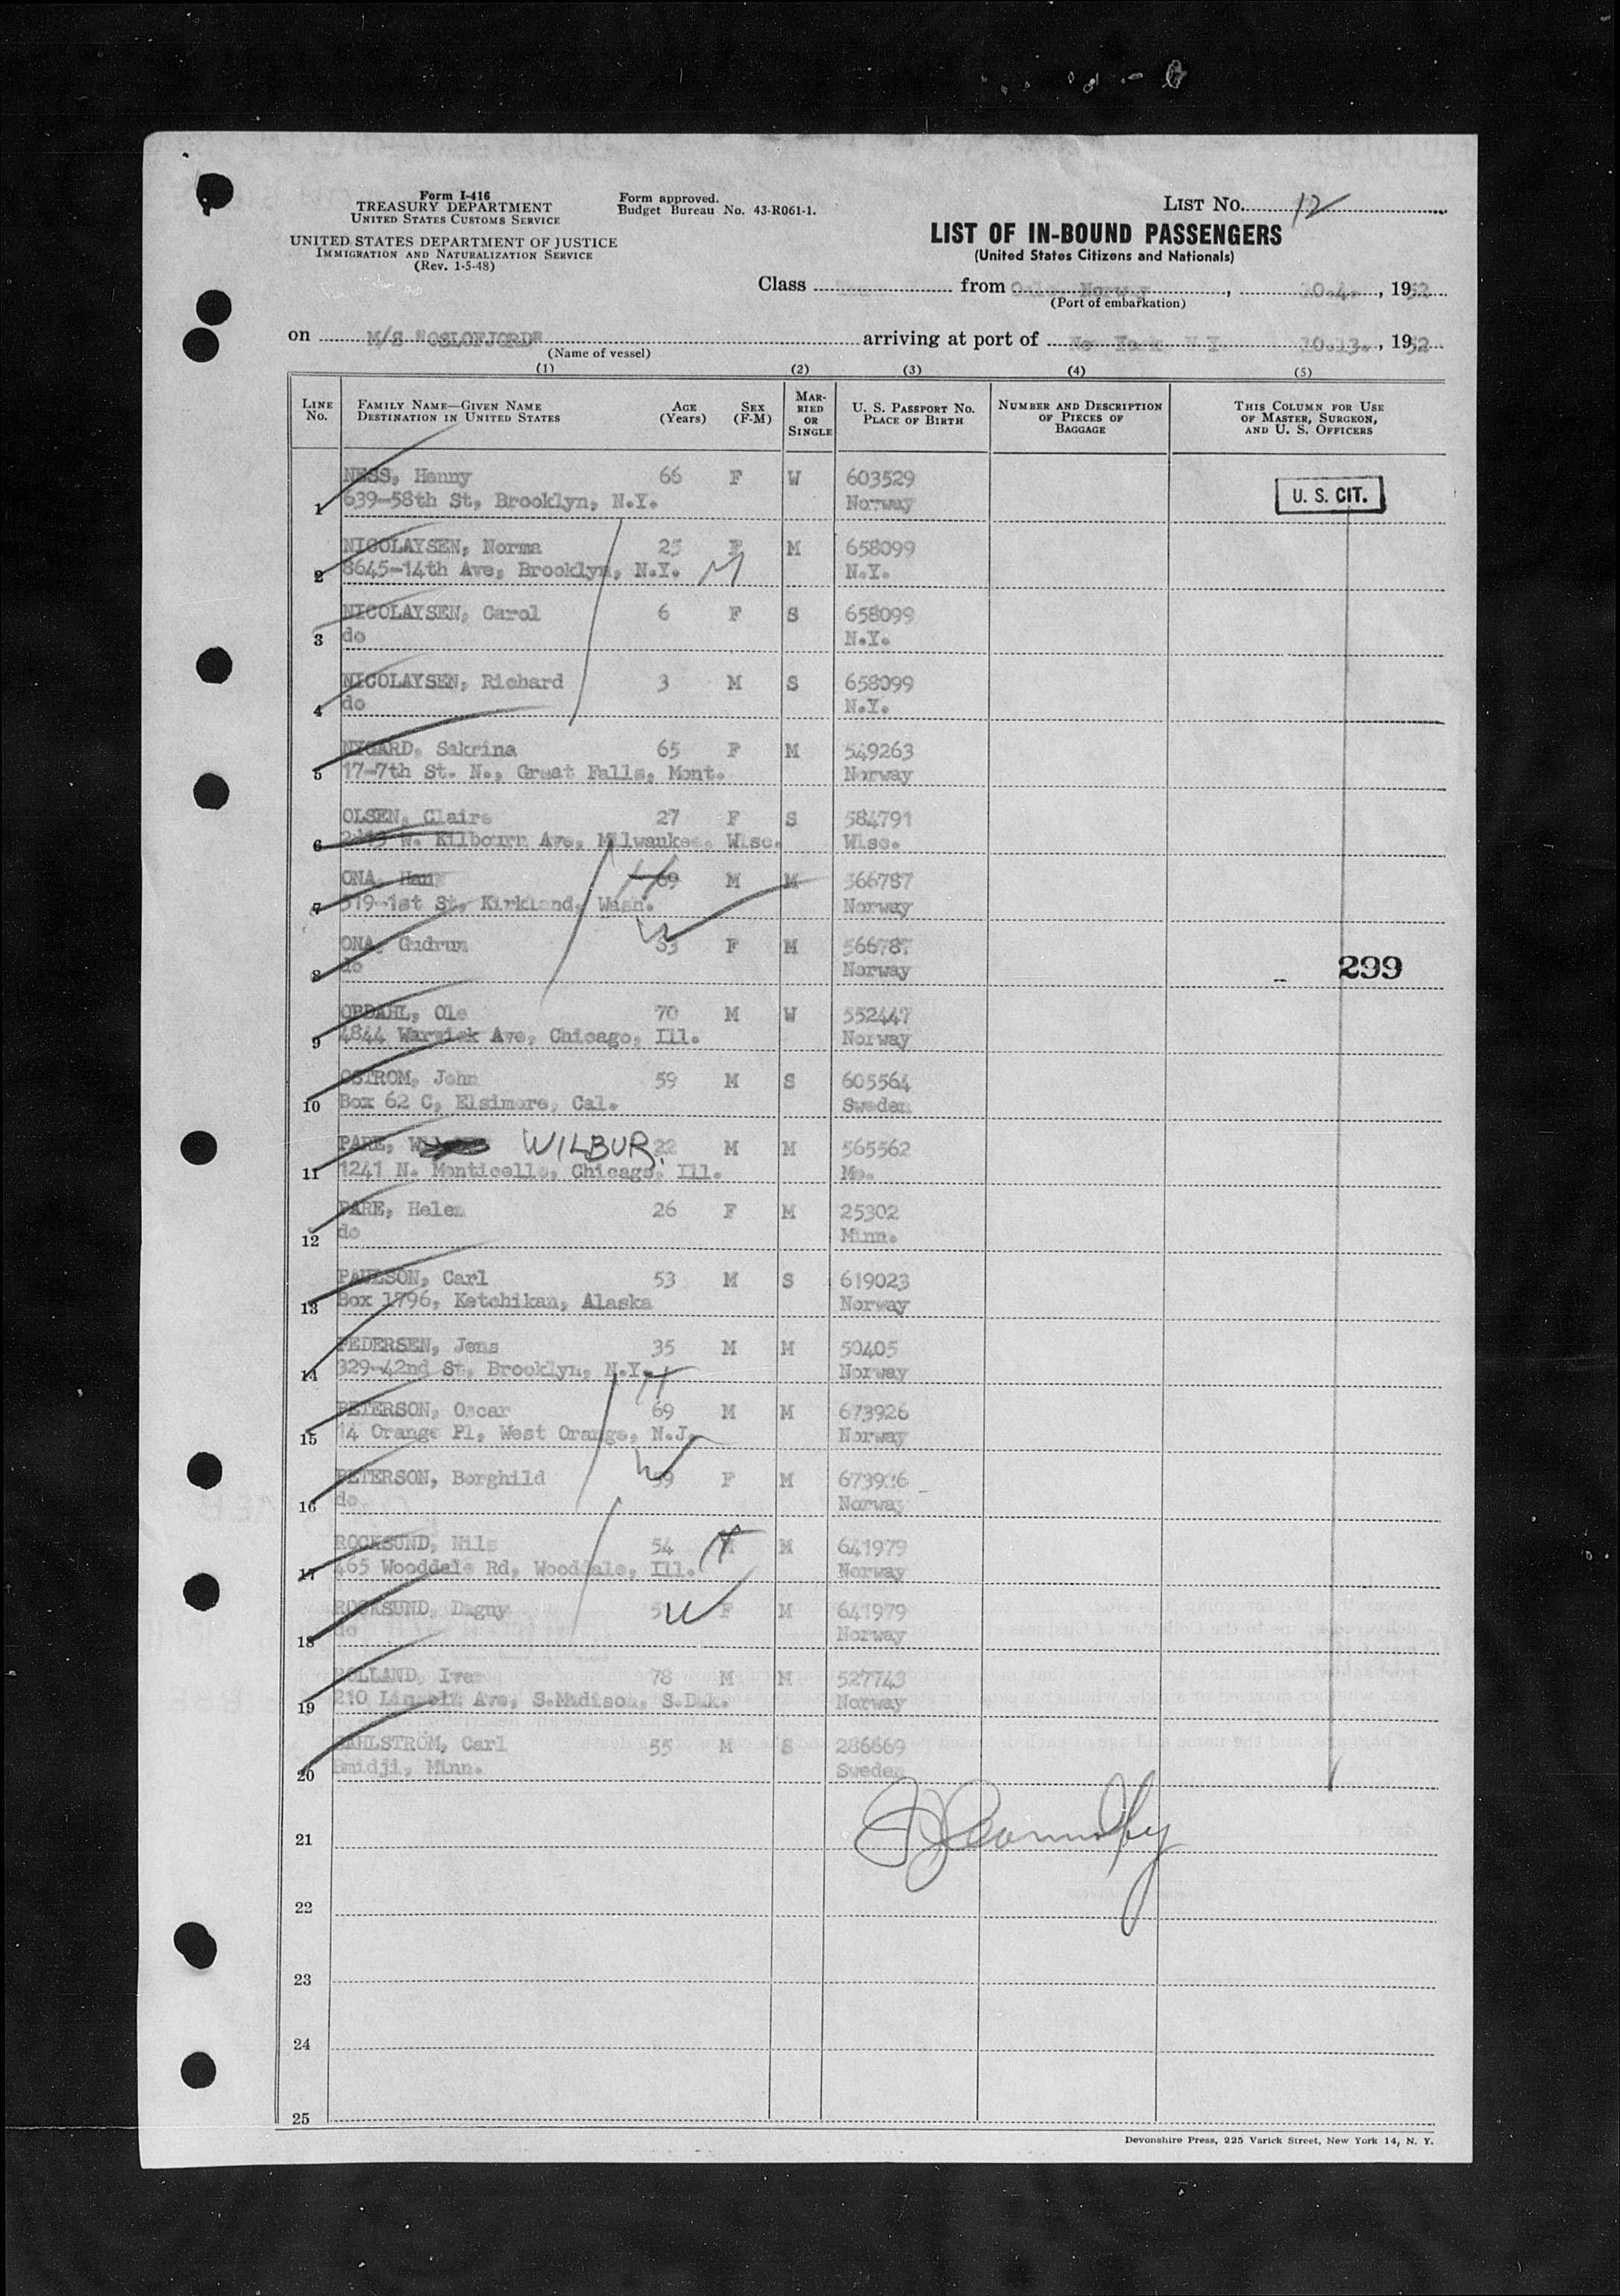 Form I-416
TREASURY DEPARTMENT
UNITED STATES CUSTOMS SERVICE
UNITED STATES DEPARTMENT OF JUSTICE
IMMIGRATION AND NATURALIZATION SERVICE
(Rev. 1-5-48)
Form approved.
Budget Bureau No. 43-R061-1.
LIST NO. 12
LIST OF IN-BOUND PASSENGERS
(United States Citizens and Nationals)
Class from Oslo, Norway, 10.4., 1952
(Port of embarkation)
on M/S "OSLOFJORD" arriving at port of New York, N.Y. 10.13., 1952
(Name of vessel)
(1) (2) (3) (4) (5)
LINE NO. FAMILY NAME—GIVEN NAME DESTINATION IN UNITED STATES AGE (Years) SEX (F-M) MARRIED OR SINGLE U. S. PASSPORT NO. PLACE OF BIRTH NUMBER AND DESCRIPTION OF PIECES OF BAGGAGE THIS COLUMN FOR USE OF MASTER, SURGEON, AND U. S. OFFICERS
NESS, Henny 66 F W 603529
U. S. CIT.
1 639-58th St, Brooklyn, N.Y. Norway
NICOLAYSEN, Norma 25 F M 658099
2 8645-14th Ave, Brooklyn, N.Y. M N.Y.
NICOLAYSEN, Carol 6 F S 658099
3 do N.Y.
NICOLAYSEN, Richard 3 M S 658099
4 do N.Y.
NYGARD, Sakrina 65 F M 549263
5 17-7th St. N., Great Falls, Mont. Norway
OLSEN, Claire 27 F S 584791
6 W. Kilbourn Ave, Milwaukee, Wisc. Wisc.
ONA, Hans H 69 M M 566787
7 519-1st St, Kirkland, Wash. Norway
ONA, Gudrun W F M 566787
8 do Norway
299
OPDAHL, Ole 70 M W 552447
9 4844 Warwick Ave, Chicago, Ill. Norway
OSTROM, John 59 M S 605564
10 Box 62 C, Elsimore, Cal. Sweden
PARE, WILBUR. 22 M M 565562
11 1241 N. Monticello, Chicago, Ill. Mo.
PARE, Helen 26 F M 25302
12 do Minn.
PAULSON, Carl 53 M S 619023
13 Box 1796, Ketchikan, Alaska Norway
PEDERSEN, Jens 35 M M 50405
14 329-42nd St, Brooklyn, N.Y. Norway
H
PETERSON, Oscar 69 M M 673926
15 14 Orange Pl, West Orange, N.J. Norway
W
PETERSON, Borghild 59 F M 673926
16 do Norway
ROCKSUND, Nils 54 H M 641979
17 465 Wooddale Rd, Wooddale, Ill. Norway
ROCKSUND, Dagny W F M 641979
18 do Norway
ROLLAND, Iver 78 M M 527743
19 210 Lincoln Ave, S.Madison, S.Dak. Norway
DAHLSTRÖM, Carl 55 M S 286669
20 Bmidji, Minn. Sweden
21
22
23
24
25
Devonshire Press, 225 Varick Street, New York 14, N. Y.